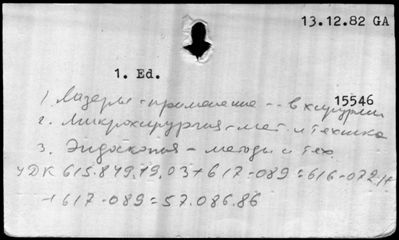 13.12.82 GA
1. Ed.
15546
1. Лазеры - применение -- в хирургии
2. Микрохирургия - мет. и техника
3. Эндоскопия - методы и тех.
УДК 615.849.19.03+617-089=616-072.1+
+617-089=57.086.86